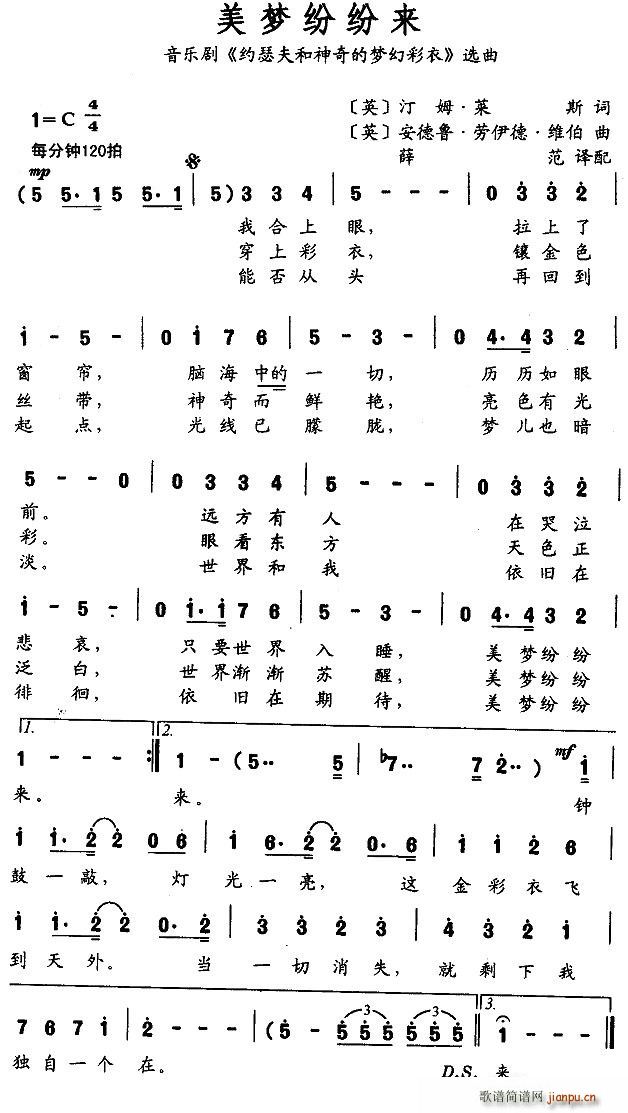 美梦纷纷来
音乐剧《约瑟夫和神奇的梦幻彩衣》选曲
1=C 4/4
每分钟120拍
〔英〕汀姆·莱斯 词
〔英〕安德鲁·劳伊德·维伯 曲
薛范 译配
mp
(5 5· 1 5 5· 1 | 5) 3 3 4 | 5 - - - | 0 3 3 2 |
我合上眼, 拉上了
穿上彩衣, 镶金色
能否从头 再回到
i - 5 - | 0 i 7 6 | 5 - 3 - | 0 4· 4 3 2 |
窗帘, 脑海中的一切, 历历如眼
丝带, 神奇而鲜艳, 亮色有光
起点, 光线已朦胧, 梦儿也暗
5 - - 0 | 0 3 3 4 | 5 - - - | 0 3 3 2 |
前。 远方有人 在哭泣
彩。 眼看东方 天色正
淡。 世界和我 依旧在
i - 5 - | 0 i· i 7 6 | 5 - 3 - | 0 4· 4 3 2 |
悲哀, 只要世界入睡, 美梦纷纷
泛白, 世界渐渐苏醒, 美梦纷纷
徘徊, 依旧在期待, 美梦纷纷
1. 2.
1 - - - :‖ 1 - (5·· 5 | ♭7·· 7 2··) mf i |
来。 来。 钟
i i· 2 2 0 6 | i 6· 2 2 0· 6 | i i 2 6 |
鼓一敲, 灯光一亮, 这金彩衣飞
i i· 2 2 0· 2 | 3 3 2 3 | 4 3 2 i |
到天外。 当一切消失, 就剩下我
3.
7 6 7 i | 2 - - - | (5 - 5 5 5 5 5 5 ‖ 1 - - - ‖
独自一个在。 D.S. 来
歌谱简谱网
jianpu.cn